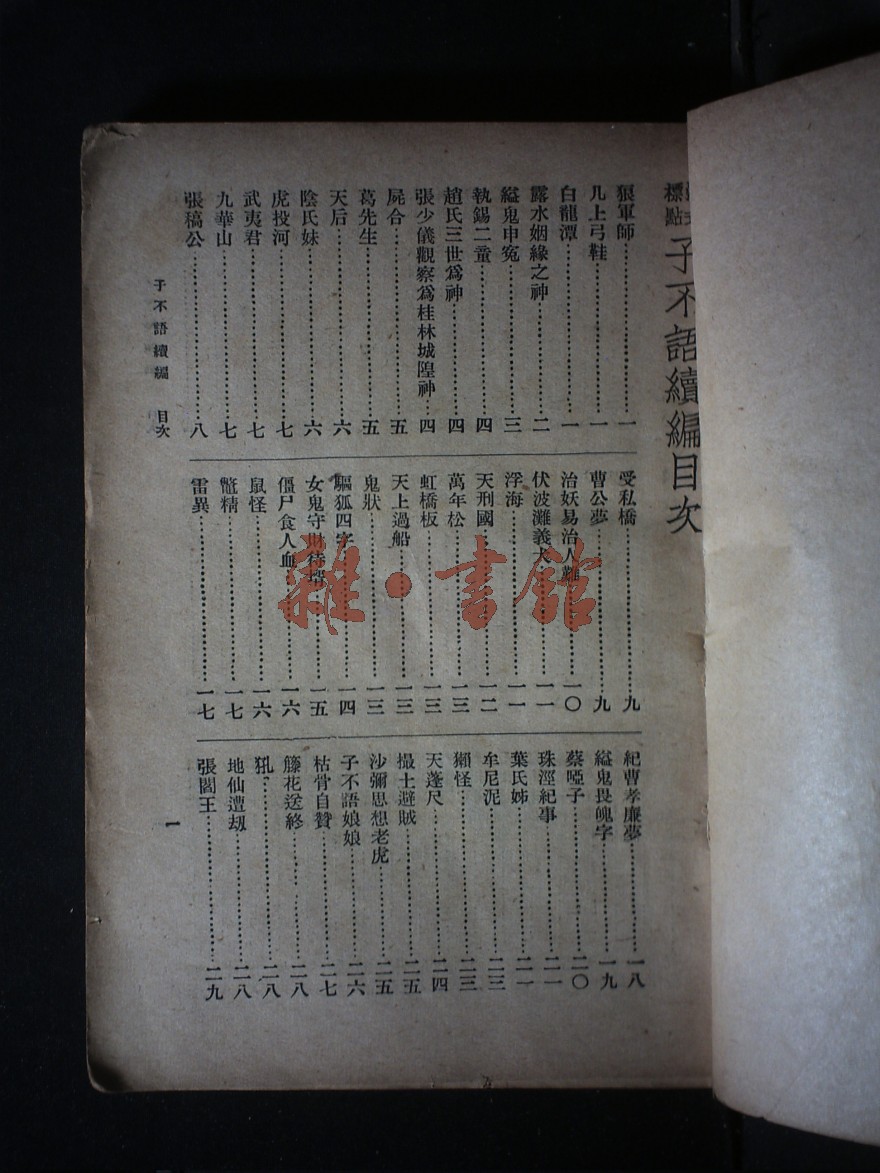 標點
子不語續編目次
狼軍師…一
几上弓鞋…一
白龍潭…一
露水姻緣之神…二
縊鬼申冤…三
執錫二童…四
趙氏三世爲神…四
張少儀觀察爲桂林城隍神…四
屍合…五
葛先生…五
天后…六
陰氏妹…六
虎投河…七
武夷君…七
九華山…七
張稿公…八
受私橋…九
曹公夢…九
治妖易治人難…一〇
伏波灘義犬…一一
浮海…一一
天刑國…一二
萬年松…一三
虹橋板…一三
天上過船…一三
鬼狀…一三
驅狐四字…一四
女鬼守財待壻…一五
僵尸食人血…一六
鼠怪…一六
鼈精…一七
雷異…一七
紀曹孝廉夢…一八
縊鬼畏魄字…一九
蔡啞子…二〇
珠涇紀事…二一
葉氏姊…二一
牟尼泥…二三
獺怪…二三
天蓬尺…二四
撮土避賊…二五
沙彌思想老虎…二五
子不語娘娘…二六
枯骨自贊…二七
籐花送終…二八
犼…二八
地仙遭劫…二八
張閻王…二九
子不語續編 目次
一
雜·書館